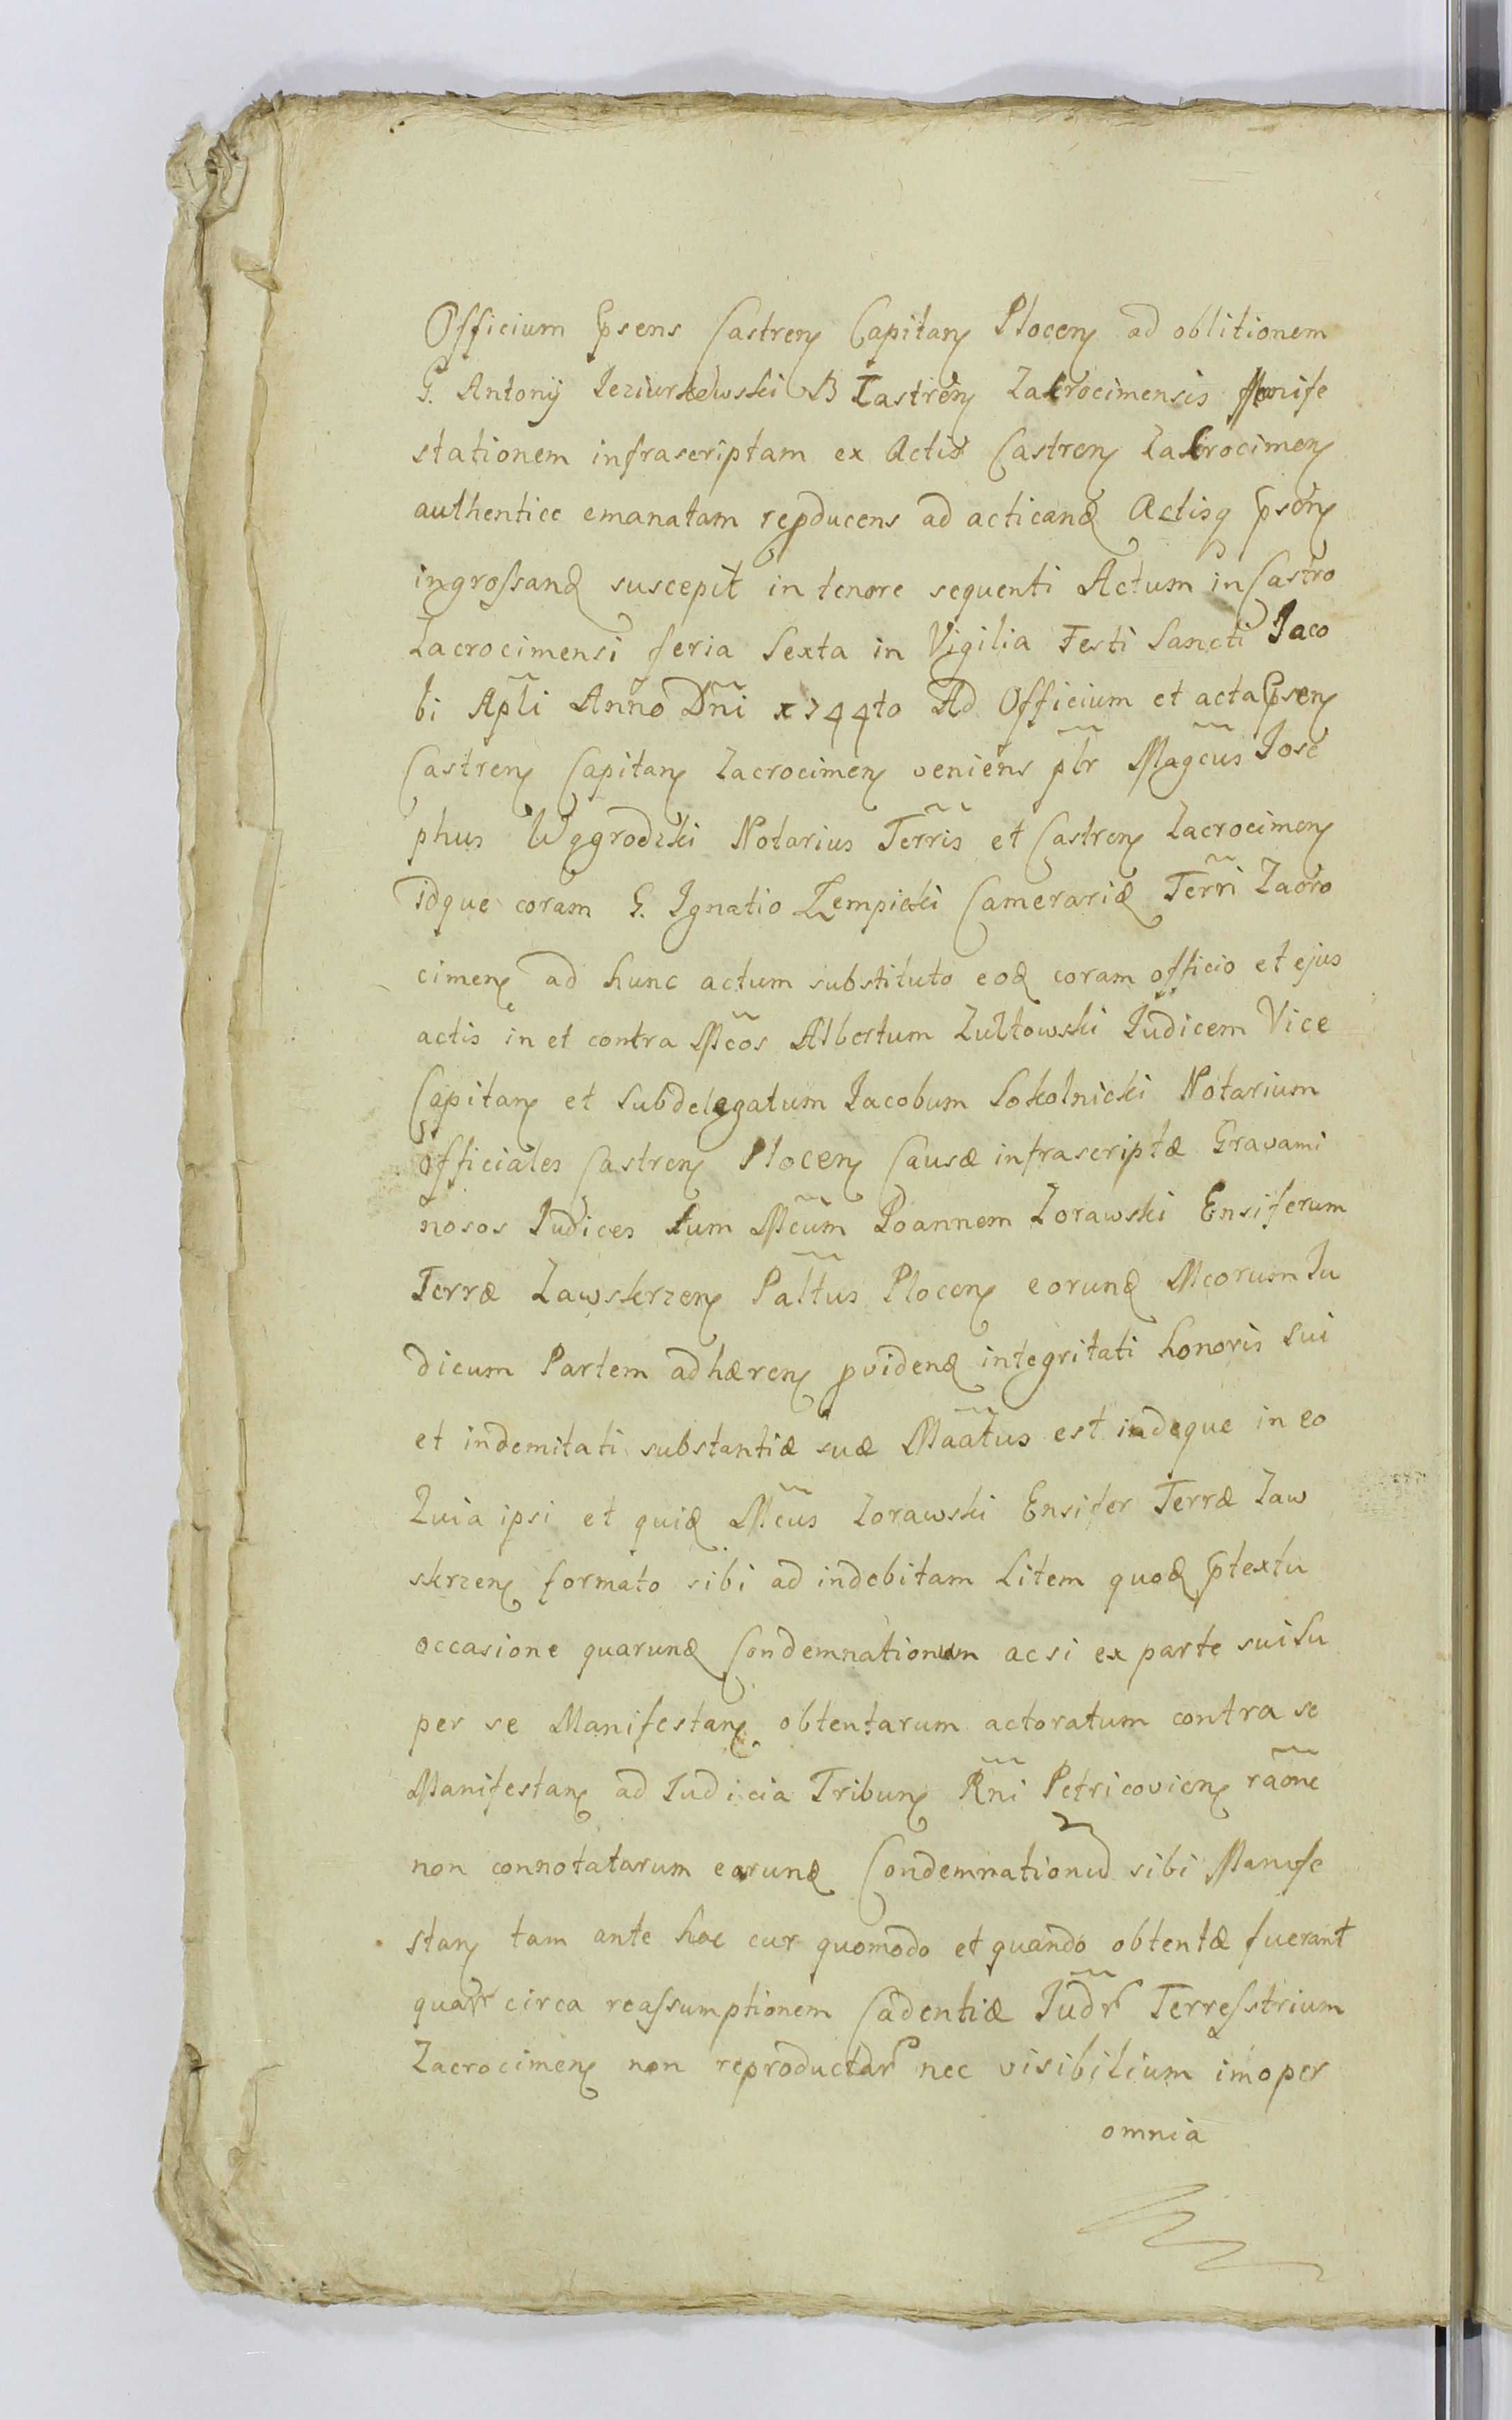 Officium Psens Castren Capitan Plocen ad oblitionem
G. Antonij Jeziurkowski B Castren Zakrocimensis Manife
stationem infrascriptam ex Actis Castren Zakrocimen
authentice emanatam reproducens ad acticand Actisq Psen
ingrossand suscepit in tenore sequenti Actum in Castro
Zacrocimensi feria Sexta in Vigilia Festi Sancti Jaco
bi Apli Anno Dni 1744to Ad Officium et acta Psen
Castren Capitan Zacrocimen veniens plr Magcus Jose
phus Wygrodzki Notarius Terris et Castren Zacrocimen
idque coram G. Ignatio Łempicki Camerarid Terri Zacro
cimen ad hunc actum substituto eod coram officio et ejus
actis in et contra Mcos Albertum Zułtowski Judicem Vice
Capitan et Subdelegatum Jacobum Sokolnicki Notarium
Officiales Castren Plocen Causæ infrascriptæ Gravami
nosos Judices tum Mcum Joannem Zorawski Ensiferum
Terræ Zawskrzen Paltus Plocen eorund Mcorum Ju
dicum Partem adhæren providend integritati honoris sui
et indemitati substantiæ suæ Maatus est indeque in eo
Quia ipsi et quid Mcus Zorawski Ensifer Terræ Zaw
skrzen formato sibi ad indebitam Litem quod Ptextu
occasione quarund Condemnationum acsi ex parte sui su
per se Manifestan obtentarum actoratum contra se
Manifestan ad Judicia Tribun Rni Petricovien raone
non connotatarum earund Condemnationu sibi Manife
stan tam ante hac cur quomodo et quando obtentæ fuerant
quar circa reassumptionem Cadentiæ Judr Terrestrium
Zacrocimen non reproductar nec visibilium imo per
omnia